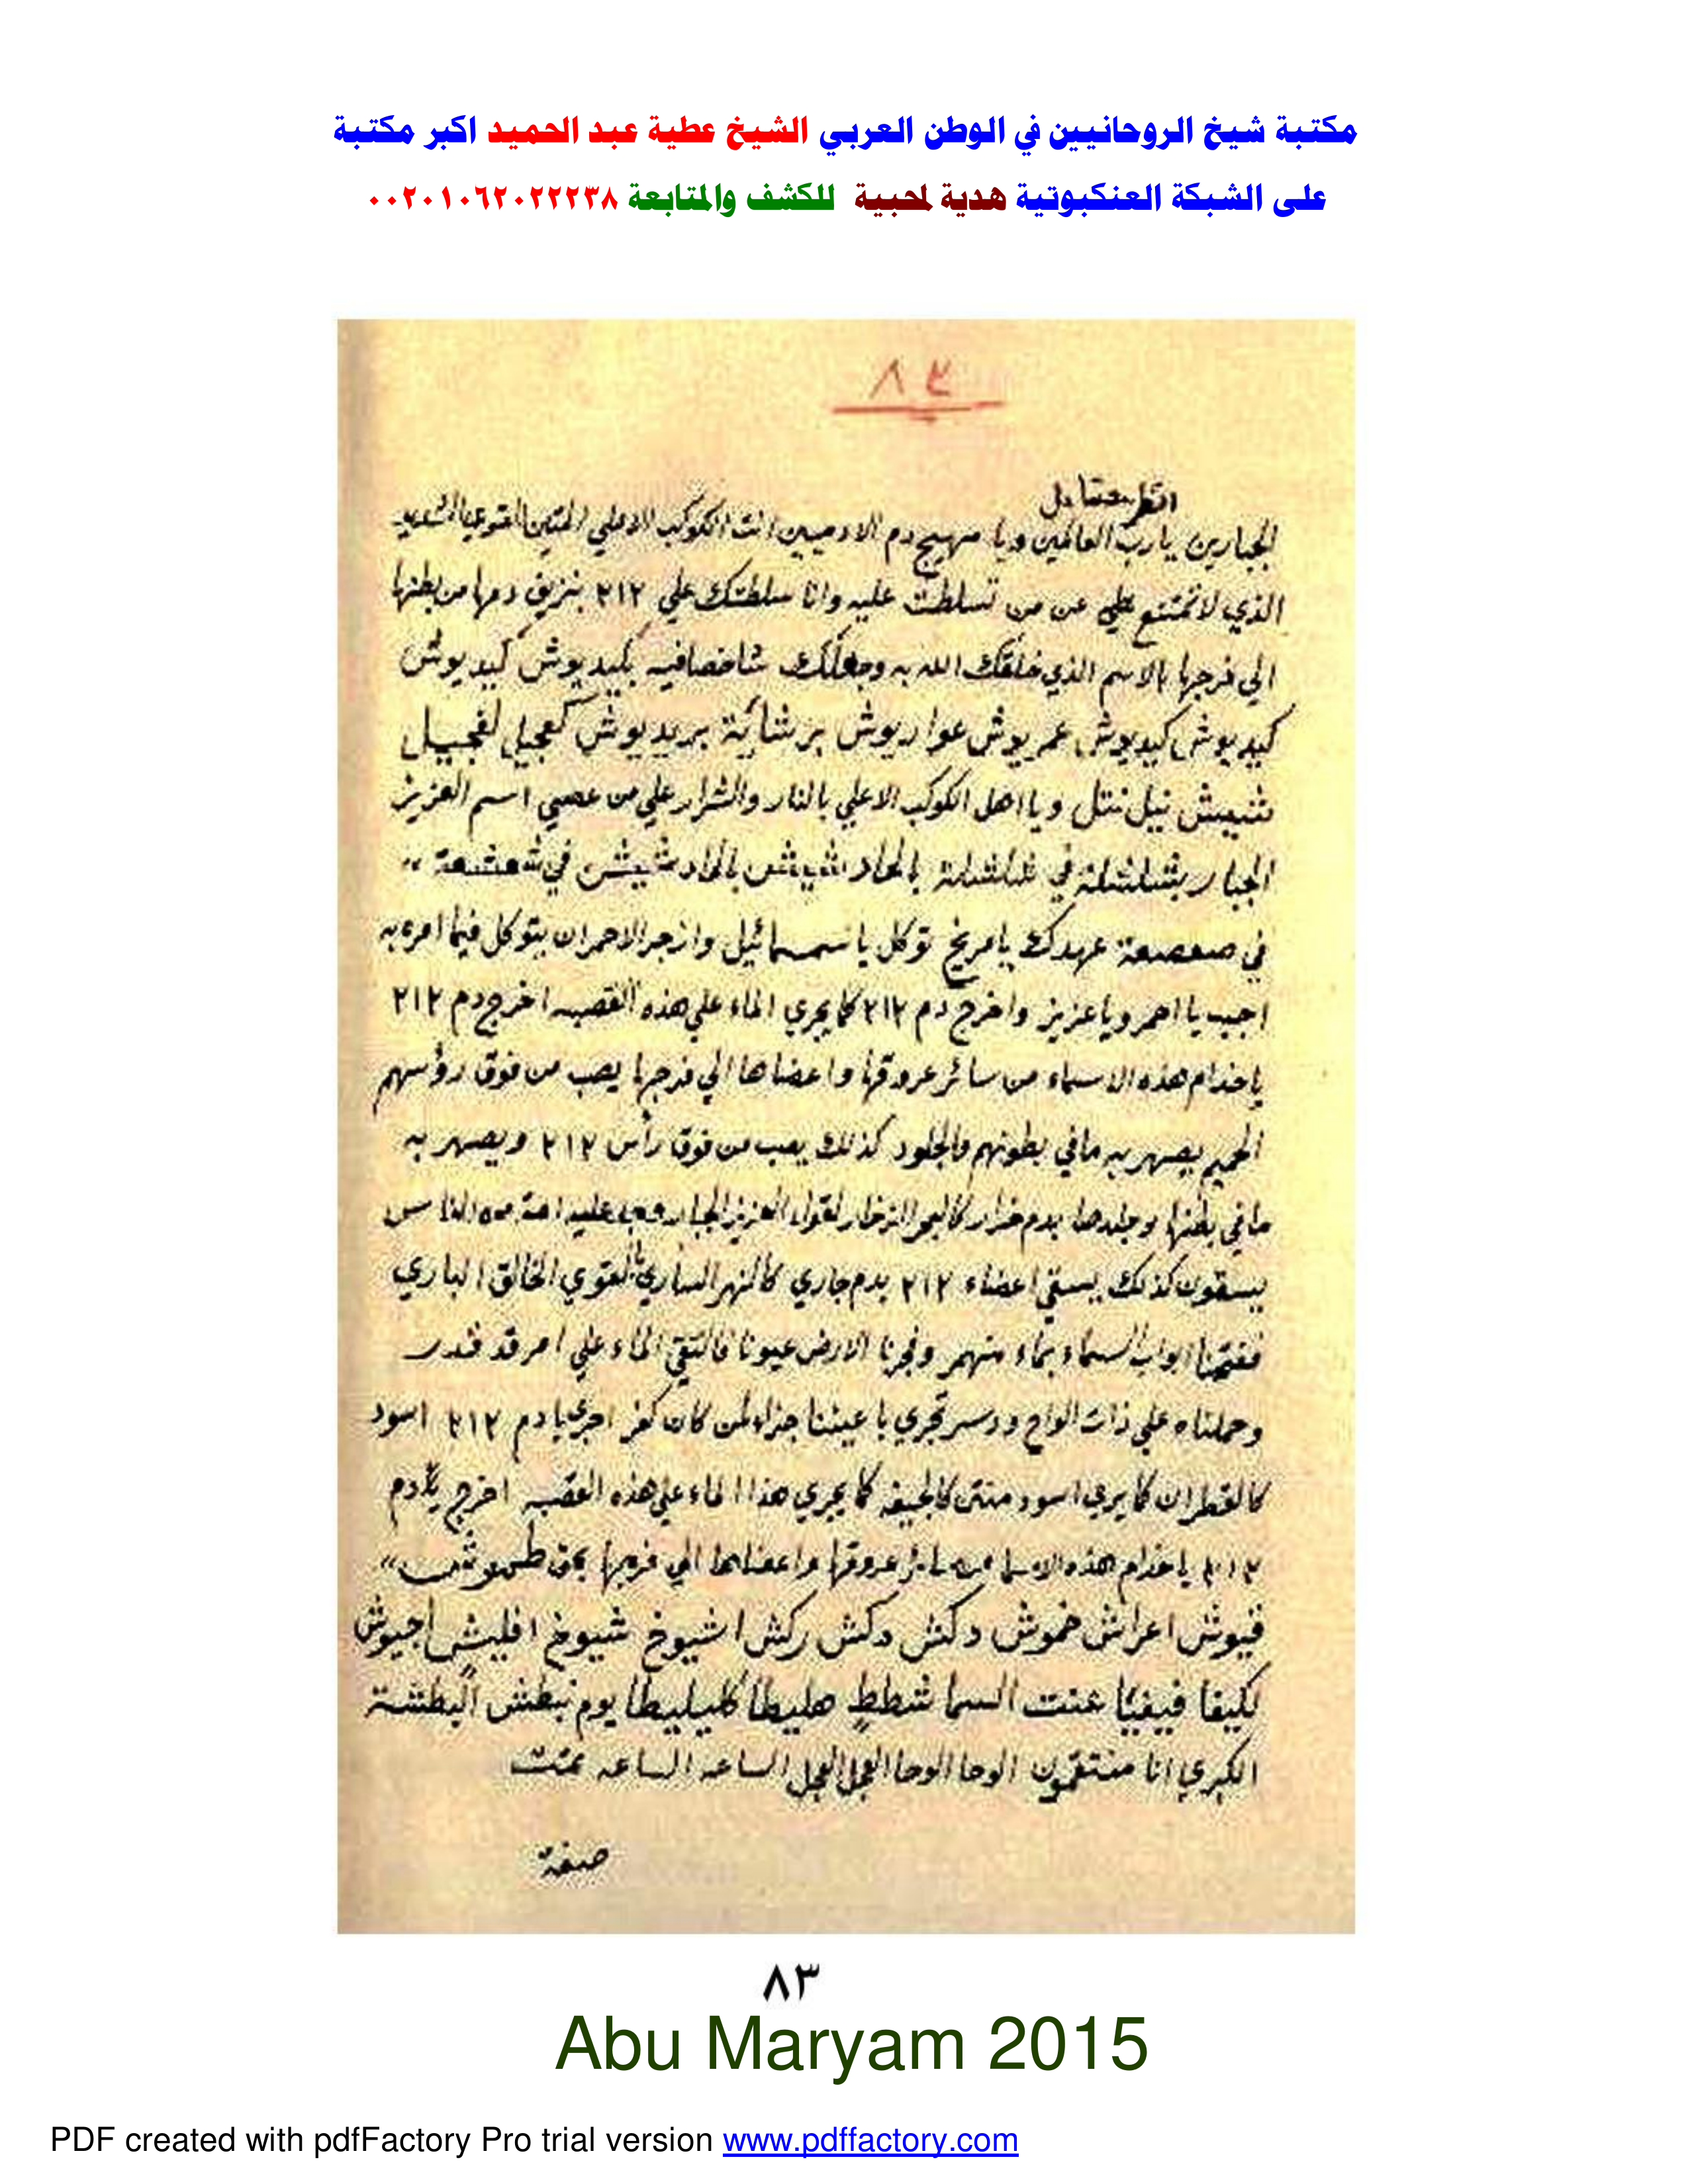 مكتبة شيخ الروحانيين في الوطن العربي الشيخ عطية عبد الحميد اكبر مكتبة
على الشبكة العنكبوتية هدية لمحبية للكشف والمتابعة ٠٠٢٠١٠٦٢٠٢٢٢٣٨
٨٣
الجبارين يارب العالمين ويا مهيج دم الادميين انت الكوكب الاعلي المتين القوي الشديد
الذي لا تمتنع عن من تسلطت عليه وانا سلطتك علي ٢١٢ بنزيف دمها من بطنها
الي فرجها بالاسم الذي خلقك الله به وجعلك شاخصا فيه بكيديوش كيديوش
كيديوش كيديوش عمريوش عواريوش برشائة بريديوش كعجيل لفجيل
شيش نيل نتل ويا اهل الكوكب الاعلي بالنار والشرار علي من عصي اسم العزيز
الجبار في بالحاد شيش بالحاد شيش في شعشعة
في صعصعة عهدك يا مريخ توكل يا سمسمائيل وازجر الاحمران يتوكل فيما امره به
اجب يا احمر ويا عزيز واخرج دم ٢١٢ كما يجري الماء علي هذه القصبه اخرج دم ٢١٢
يا خدام هذه الاسماء من سائر عروقها واعضاها الي فرجها يصب من فوق رؤسهم
الحميم يصهر به ما في بطونهم والجلود كذلك يصب من فوق رأس ٢١٢ ويصهر به
ما في بطنها وجلدها بدم كالبحر الزخار لقول العزيز الجبار وجد عليه امة من الناس
يسقون كذلك يسقي اعضاء ٢١٢ بدم جاري كالنهر الساري القوي الخالق الباري
ففتحنا ابواب السماء بماء منهمر وفجرنا الارض عيونا فالتقي الماء علي امر قد قدر
وحملناه علي ذات الواح ودسر تجري باعيننا جزاء لمن كان كفر اجري يا دم ٢١٢ اسود
كالقطران كما يري اسود منتن كالجيفه كما يجري هذا الماء علي هذه القصبه اخرج يا دم
٢١٢ يا خدام هذه الاسما من سائر عروقها واعضاها الي فرجها بحق
فيوش اعراش خموش دكش دكش ركش اشيوخ شيوخ افليش اجيوش
لكيفا عنت السما شطط هليطا كليليطا يوم نبطش البطشة
الكبري انا منتقمون الوحا الوحا العجل العجل الساعه الساعه تمت
صفة
٨٣
Abu Maryam 2015
PDF created with pdfFactory Pro trial version www.pdffactory.com